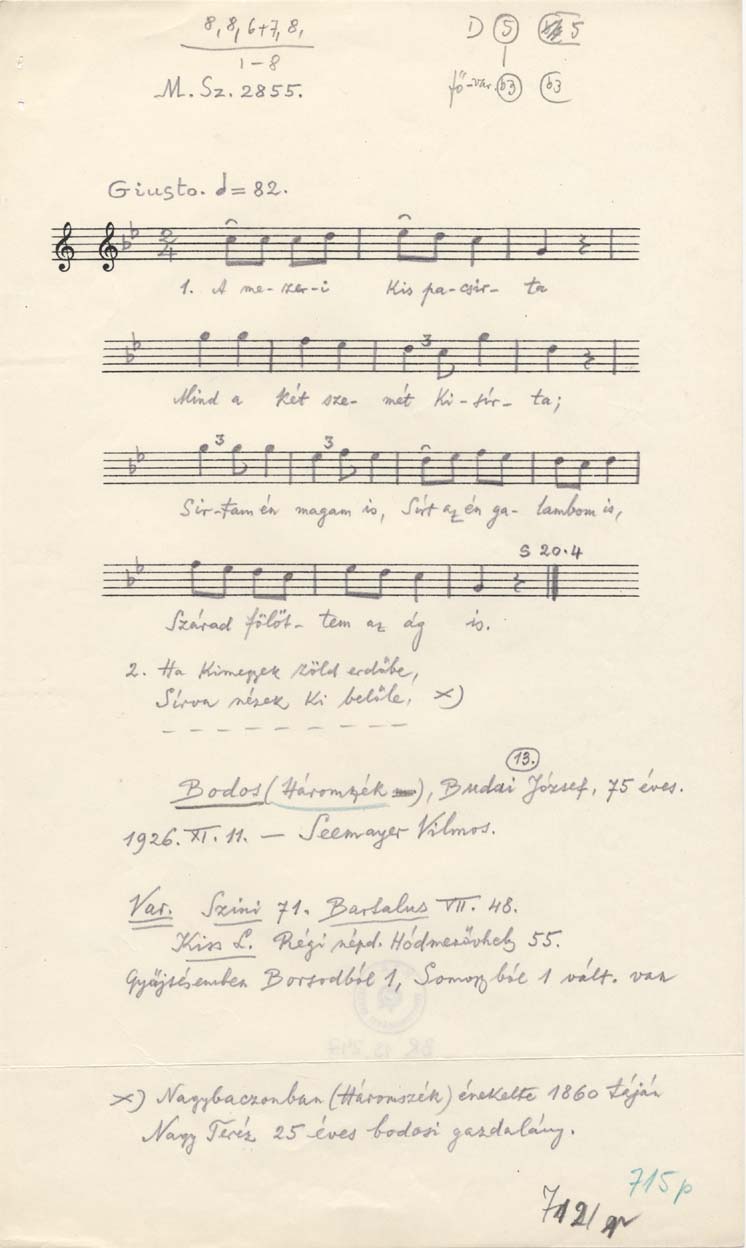 8, 8, 6+7, 8,
1-8
M. Sz. 2855.
D 5 5
fő-var. b3 b3
Giusto. = 82.
2
4
1. A me-zer-i Kis pa-csir-ta
3
Mind a két sze- mét Ki-sír- ta;
3 3
Sír-tam én magam is, Sírt az én ga- lambom is,
S 20.4
Szárad fölöt- tem az ág is.
2. Ha Kimegyek zöld erdőbe,
Sírva nézek Ki belőle, x)
13.
Bodos (Háromszék), Budai József, 75 éves.
1926. XI. 11. — Seemayer Vilmos.
Var. Szini 71. Bartalus VII. 48.
Kiss L. Régi népd. Hódmezővhely 55.
Gyűjtésemben Borsodból 1, Somogyból 1 vált. van
x) Nagybaczonban (Háromszék) énekelte 1860 táján
Nagy Teréz 25 éves bodosi gazdalány.
715p